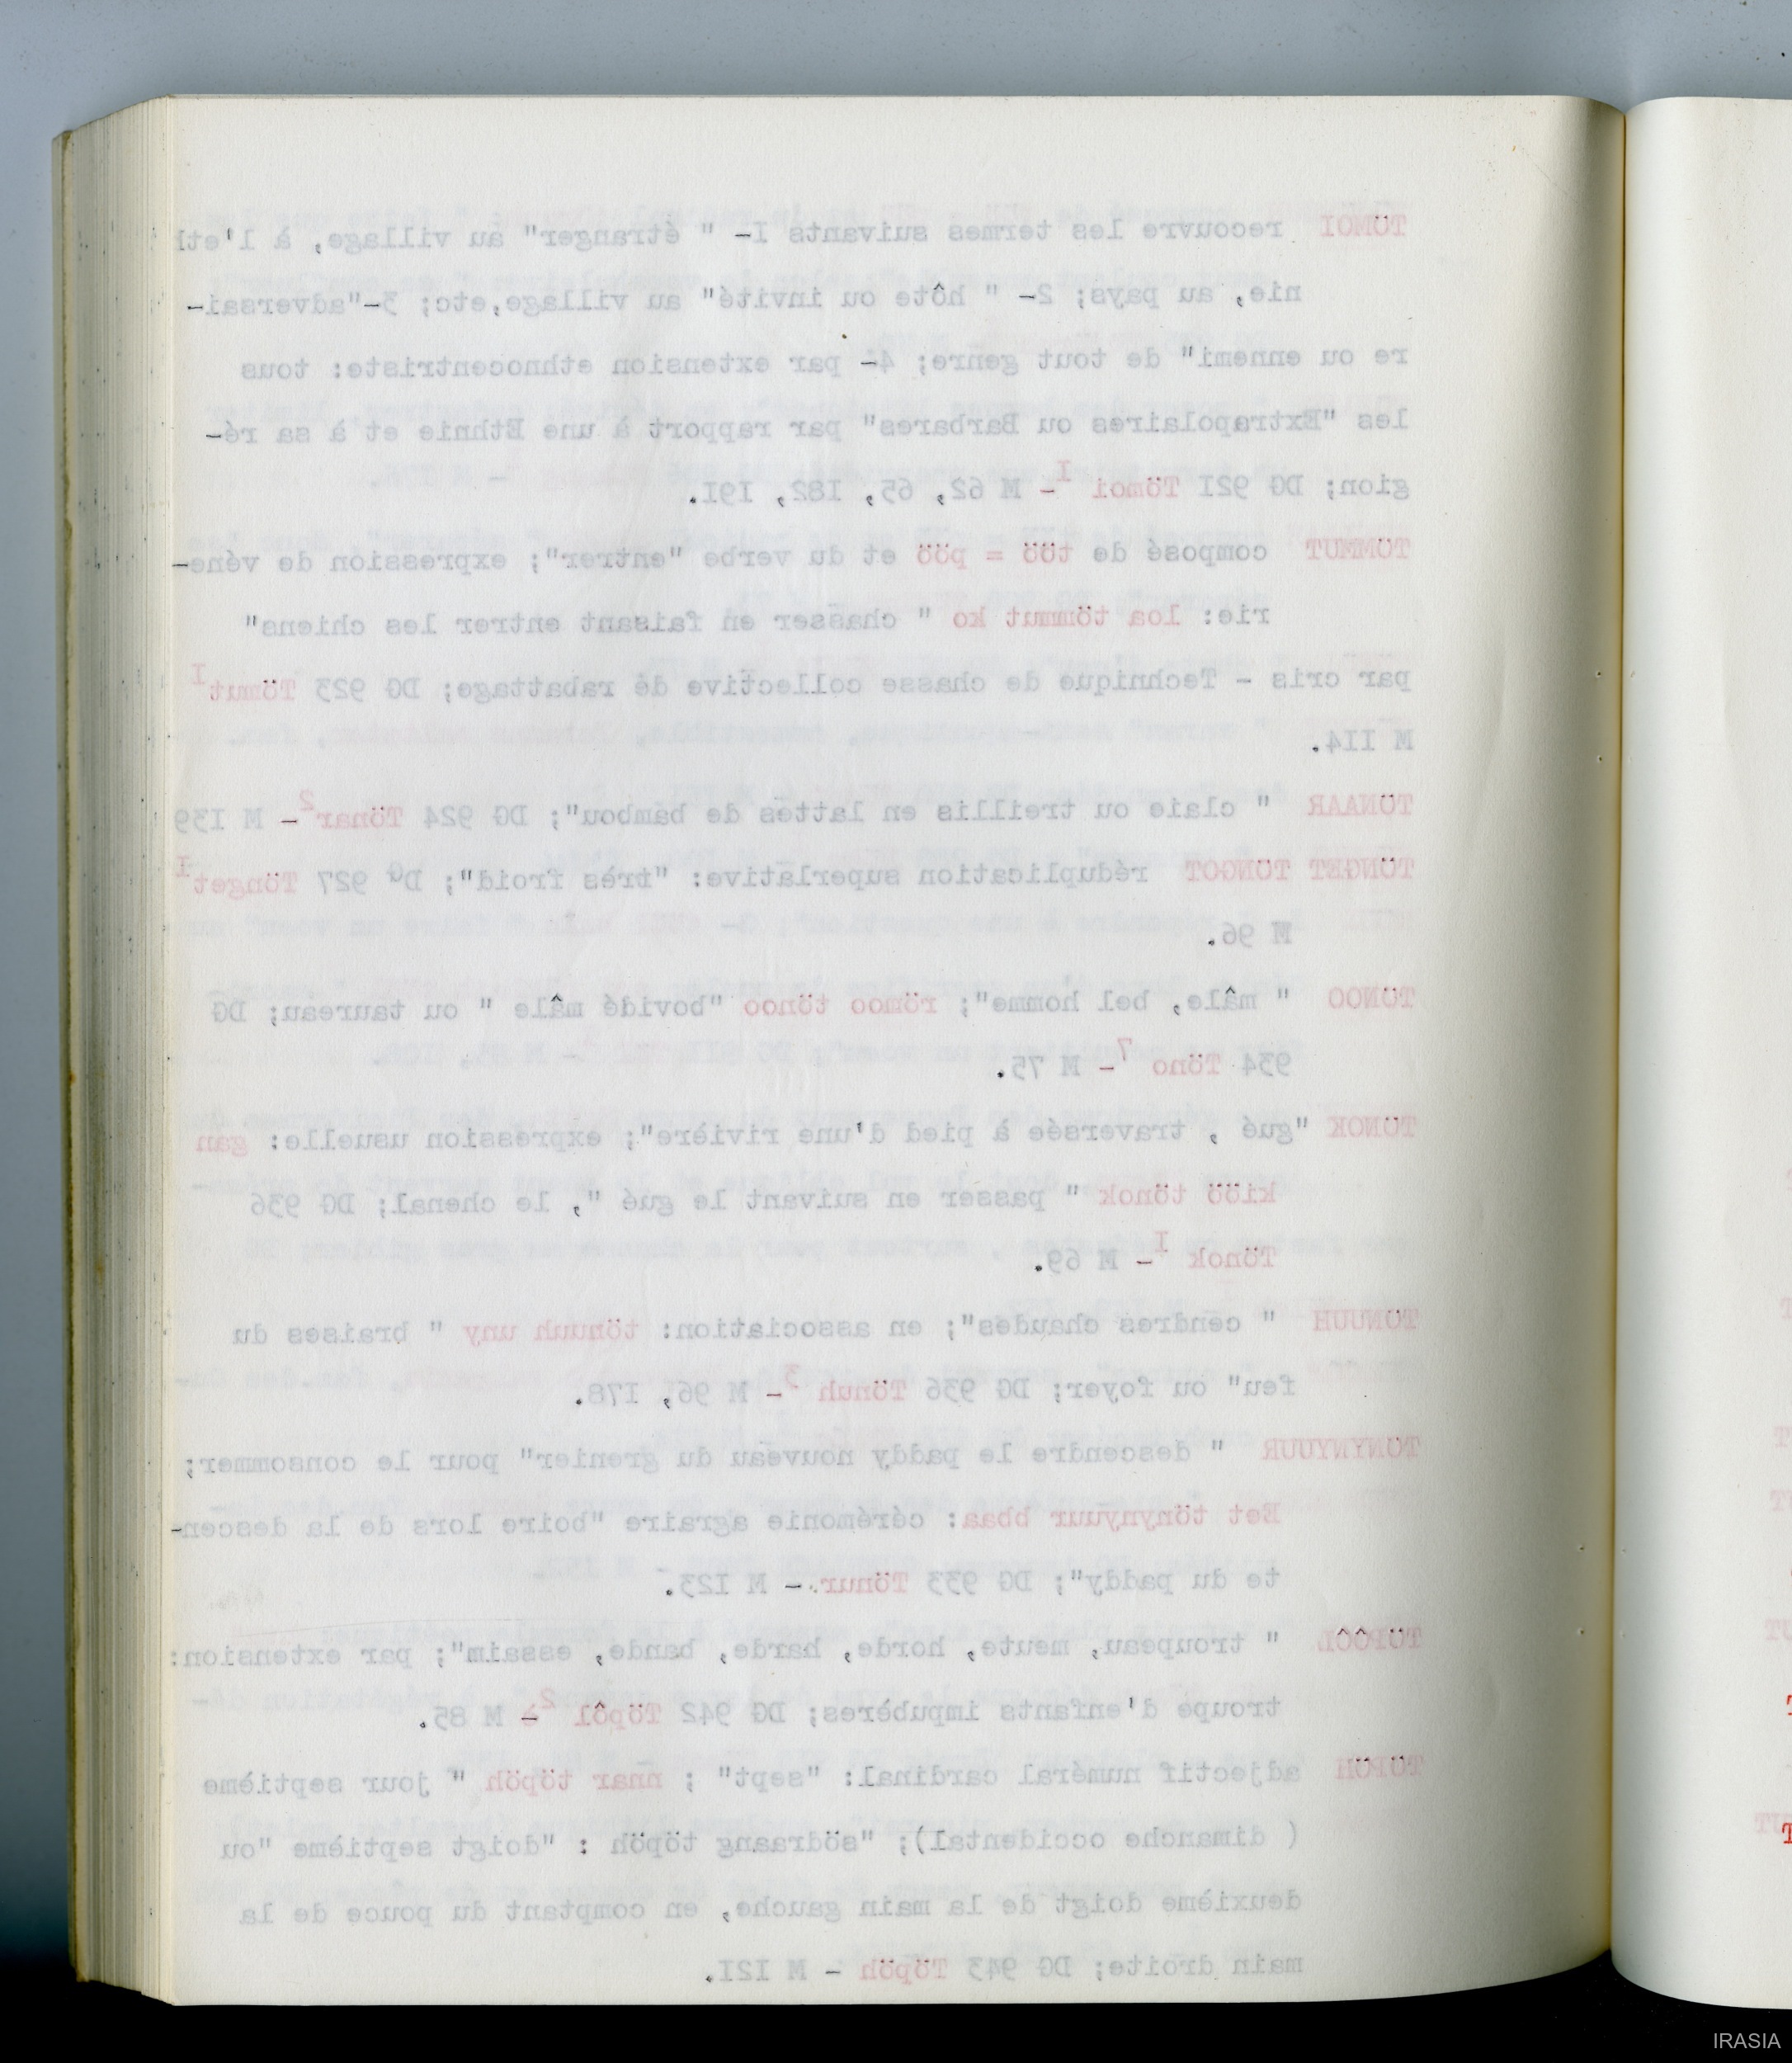 TÖMOI recouvre les termes suivants I- " étranger" au village, à l'eth
nie, au pays; 2- " hôte ou invité" au village,etc; 3-"adversai-
re ou ennemi" de tout genre; 4- par extension ethnocentriste: tous
les "Extrapolaires ou Barbares" par rapport à une Ethnie et à sa ré-
gion; DG 92I Tömoi I- M 62, 65, I82, I9I.
TÖMMUT composé de töö = pöö et du verbe "entrer"; expression de véne-
rie: loa tömmut ko " chasser en faisant entrer les chiens"
par cris - Technique de chasse collective dé rabattage; DG 923 Tömut I
M II4.
TÖNAAR " claie ou treillis en lattes de bambou"; DG 924 Tönar 2- M I39
TÖNGET TÖNGOT réduplication superlative: "très froid"; DG 927 Tönget I
M 96.
TÖNOO " mâle, bel homme"; römoo tönoo "bovidé mâle " ou taureau; DG
934 Töno 7- M 75.
TÖNOK "gué , traversée à pied d'une rivière"; expression usuelle: gan
kiöö tönok " passer en suivant le gué ", le chenal; DG 936
Tönok I- M 69.
TÖNUUH " cendres chaudes"; en association: tönuuh uny " braises du
feu" ou foyer; DG 936 Tönuh 3- M 96, I78.
TÖNYNYUUR " descendre le paddy nouveau du grenier" pour le consommer;
Eet tönynyuur bbaa: cérémonie agraire "boire lors de la descen-
te du paddy"; DG 933 Tönur.- M I23.
TÖPÔÔL " troupeau, meute, horde, harde, bande, essaim"; par extension:
troupe d'enfants impubères; DG 942 Töpôl 2- M 85.
TÖPÖH adjectif numéral cardinal: "sept" ; nnar töpöh " jour septième
( dimanche occidental); "södraang töpöh : "doigt septième "ou
deuxième doigt de la main gauche, en comptant du pouce de la
main droite; DG 943 Töpöh - M I2I.
IRASIA